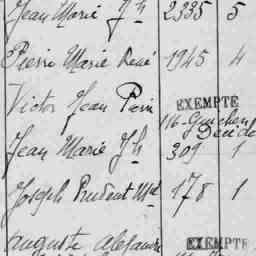 Jean Marie Jh 2335 5
Pierre Marie René 1945 4
Victor Jean Pierre EXEMPTÉ
Jean Marie Jh 309 1
Joseph Prudent Mel 178 1
Auguste Alexandre EXEMPTÉ